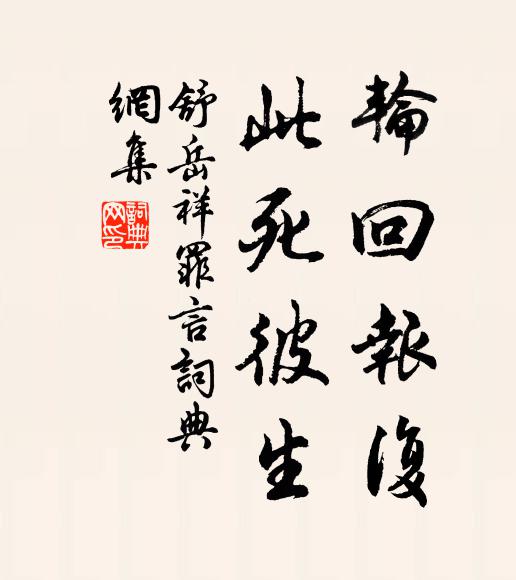 輪回報復
此死彼生
舒岳祥罪言詞典
網集
詞典
网印